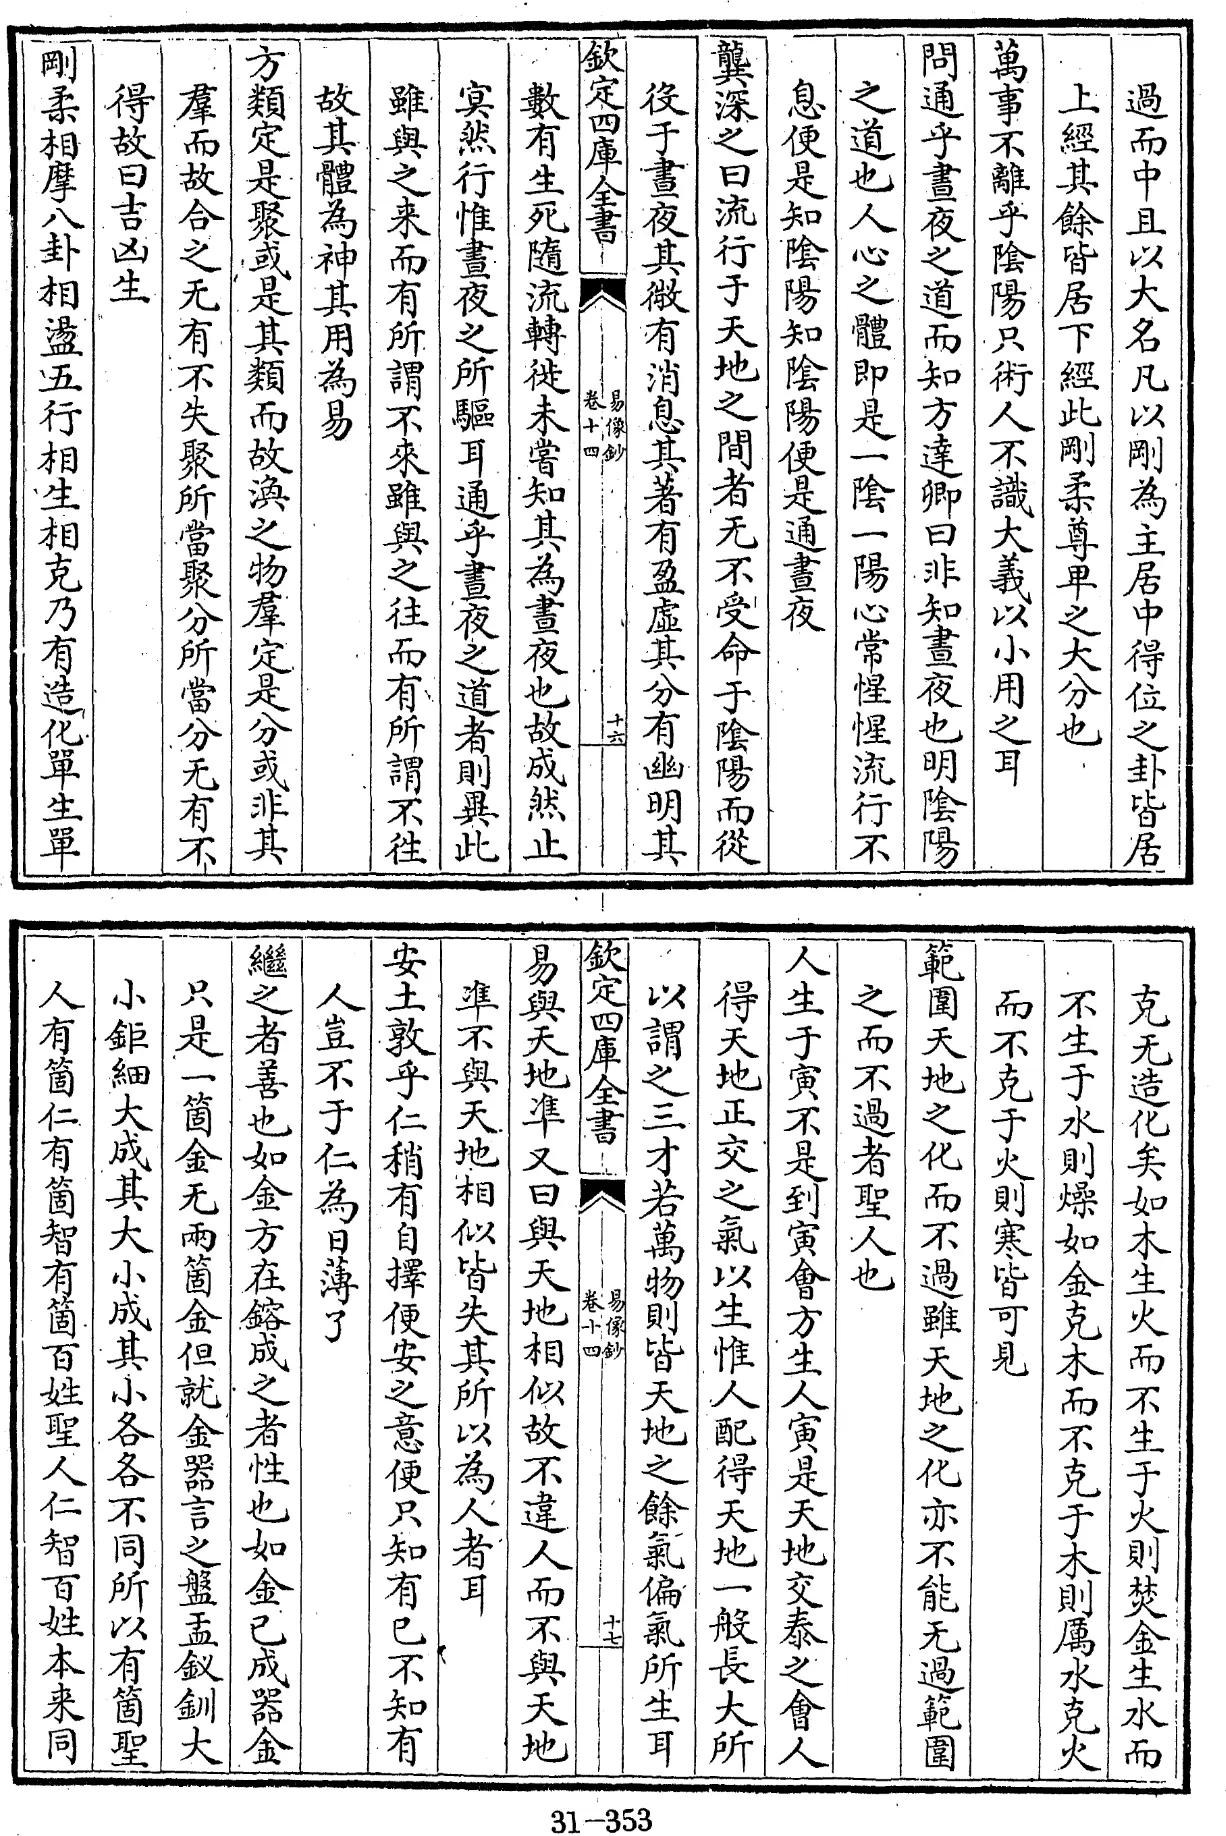 過而中且以大名凡以剛為主居中得位之卦皆居
上經其餘皆居下經此剛柔尊卑之大分也
萬事不離乎陰陽只術人不識大義以小用之耳
問通乎晝夜之道而知方達卿曰非知晝夜也明陰陽
之道也人心之體即是一陰一陽心常惺惺流行不
息便是知陰陽知陰陽便是通晝夜
龔深之曰流行于天地之間者无不受命于陰陽而從
役于晝夜其微有消息其著有盈虛其分有幽明其
欽定四庫全書
易像鈔
卷十四
十六
數有生死隨流轉徙未嘗知其為晝夜也故成然止
寞然行惟晝夜之所驅耳通乎晝夜之道者則異此
雖與之来而有所謂不來雖與之往而有所謂不往
故其體為神其用為易
方類定是聚或是其類而故渙之物羣定是分或非其
羣而故合之无有不失聚所當聚分所當分无有不
得故曰吉凶生
剛柔相摩八卦相盪五行相生相克乃有造化單生單
克无造化矣如木生火而不生于火則焚金生水而
不生于水則燥如金克木而不克于木則厲水克火
而不克于火則寒皆可見
範圍天地之化而不過雖天地之化亦不能无過範圍
之而不過者聖人也
人生于寅不是到寅會方生人寅是天地交泰之會人
得天地正交之氣以生惟人配得天地一般長大所
以謂之三才若萬物則皆天地之餘氣偏氣所生耳
欽定四庫全書
易像鈔
卷十四
十七
易與天地準又曰與天地相似故不違人而不與天地
準不與天地相似皆失其所以為人者耳
安土敦乎仁稍有自擇便安之意便只知有已不知有
人豈不于仁為日薄了
繼之者善也如金方在鎔成之者性也如金已成器金
只是一箇金无兩箇金但就金器言之盤盂釵釧大
小鉅細大成其大小成其小各各不同所以有箇聖
人有箇仁有箇智有箇百姓聖人仁智百姓本来同
31-353